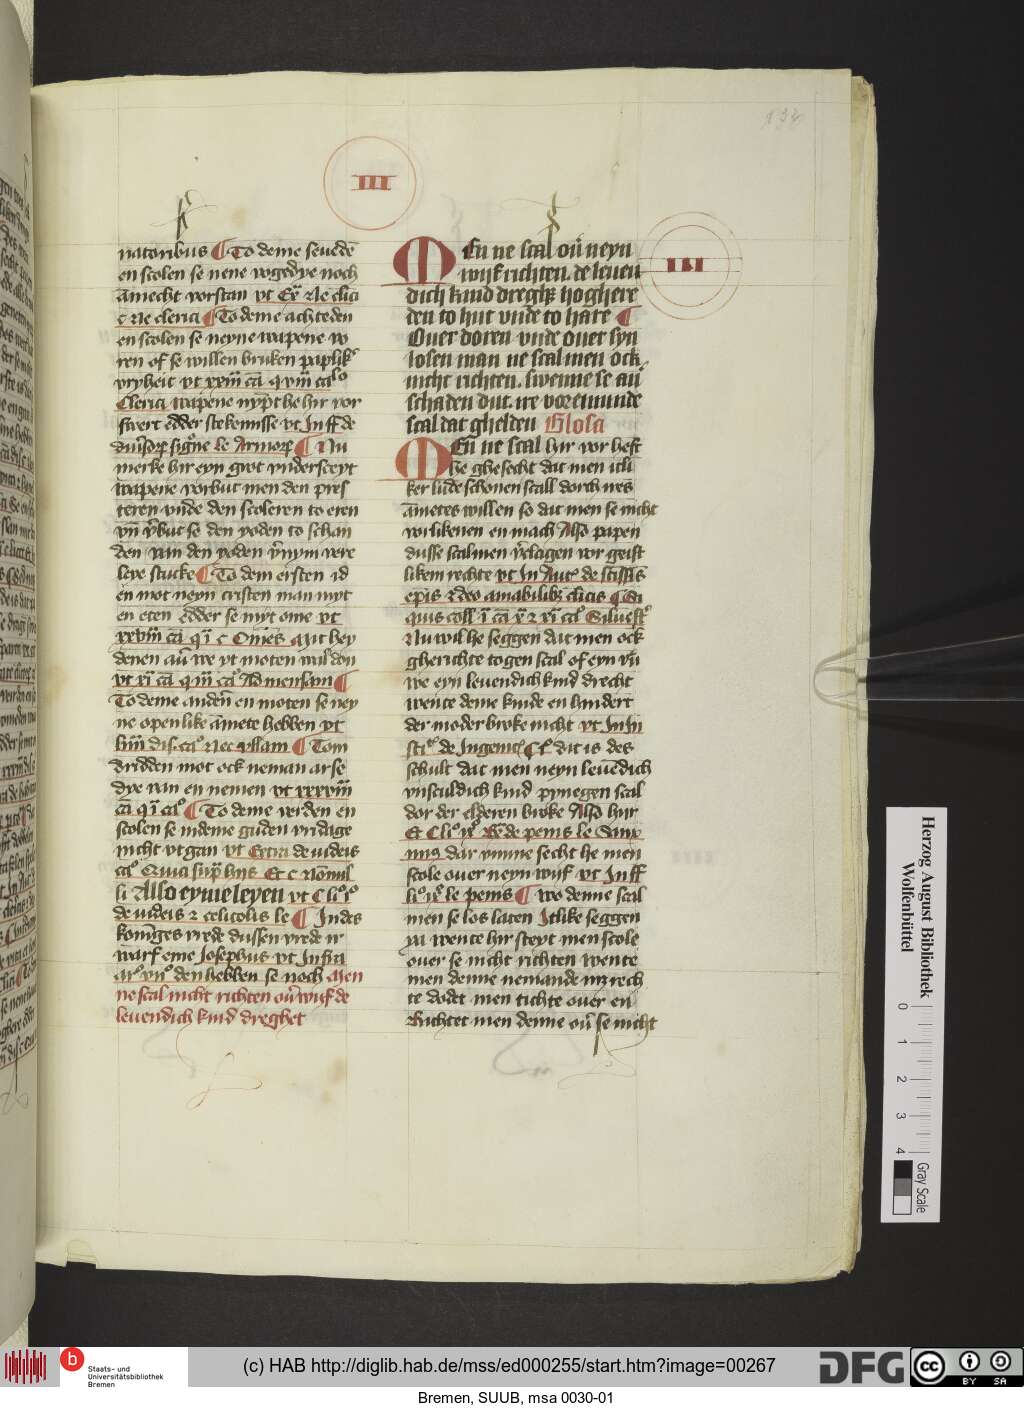 III
natoribus ¶ To deme seuedē
en scolen se nene vogedye noch
āmecht vorstan vt Ex̄ Ne clici
c Ne clerici ¶ To deme achteden
en scolen se neyne wapene vo
ren of se willen bruken paplikʳ
vryheit vt xxiij cā q viij ca
Clerici wapene nypt he hir vor
swert edder stekemisse vt In ff de
le Armorꝝ ¶ Nu
merke hir eyn grot vnderscept
wapene vorbut men den pres
teren vnde den scoleren to eren
vn̄ v̄but se den yoden to schan
den van den yoden v̄nym vere
leye stucke ¶ To dem ersten id
en mot neyn cristen man myt
en eten edder se myt ome vt
xxviij cā q i c Om̄es Mit hey
denen au̅ we yt moten wal don
vt xi cā q iij ca Ad mensam ¶
To deme anden̄ en moten se ney
ne openlike āmete hebben vt
liiij dis. ca Nec vllam ¶ Tom
dridden mot ock neman arse
dye van en nemen vt xxxviij
cā q i ca ¶ To deme verden en
scolen se indeme guden vridage
nicht vt gan vt Extra de iudeis
ca Quia sup Et c Nōnul
li Also eyme leyen vt C li
de iudeis ⁊ celicolis le ¶ In des
konīges vrede dussen vrede ir
warf eme Josephus vt Infra
den hebben se noch Men
ne scal nicht richten ou̅ wif de
leuendich kind dreghet
III
MEn ne scal ou̅ neyn
wijf richten. de leuen
dich kind dreghꝫ hoghere
den to hut vnde to hare ¶
Ouer doren vnde ouer syn
losen man ne scal men ock
nicht richten. swenne se au̅
schaden dut. ere voremunde
scal dat ghelden Glosa
MEn ne scal hir vor heft
he ghesecht dat men itli
ker lude schonen scall dorch eres
āmetes willen so dat men se nicht
vorlikenen en mach Also papen
dusse scalmen v̄clagen vor geist
likem rechte vt In Aut de scissiis
ep̄is ⁊ deo amabilibꝫ clicis ¶ Si
quis
Nu wil he seggen dat men ock
gherichte togen scal of eyn vn̄
we eyn leuendich kind drecht
wente deme kinde en hindert
der moder broke nicht vt In In
sti de Ingenuꝭ ¶ Et dit is des
schult dat men neyn leuēdich
vnsculdich kind pynegen scal
dor der elderen broke Also hir
Et C li ix Rᶜ de penis le Sanx
imꝯ dar vmme secht he men
scole ouer neyn wijf vt In ff
li le penis ¶ Wo denne scal
men se los laten Itlike seggen
ya wente hir steyt men scole
ouer se nicht richten wente
men denne nemande mꝫ rech
te dodet men tichte ouer en
Richtet men denne ou̅ se nicht
Herzog August Bibliothek
Wolfenbüttel
0 1 2 3 4
Gray Scale
b Staats- und
Universitätsbibliothek
Bremen
(c) HAB http://diglib.hab.de/mss/ed000255/start.htm?image=00267
DFG
cc BY SA
Bremen, SUUB, msa 0030-01